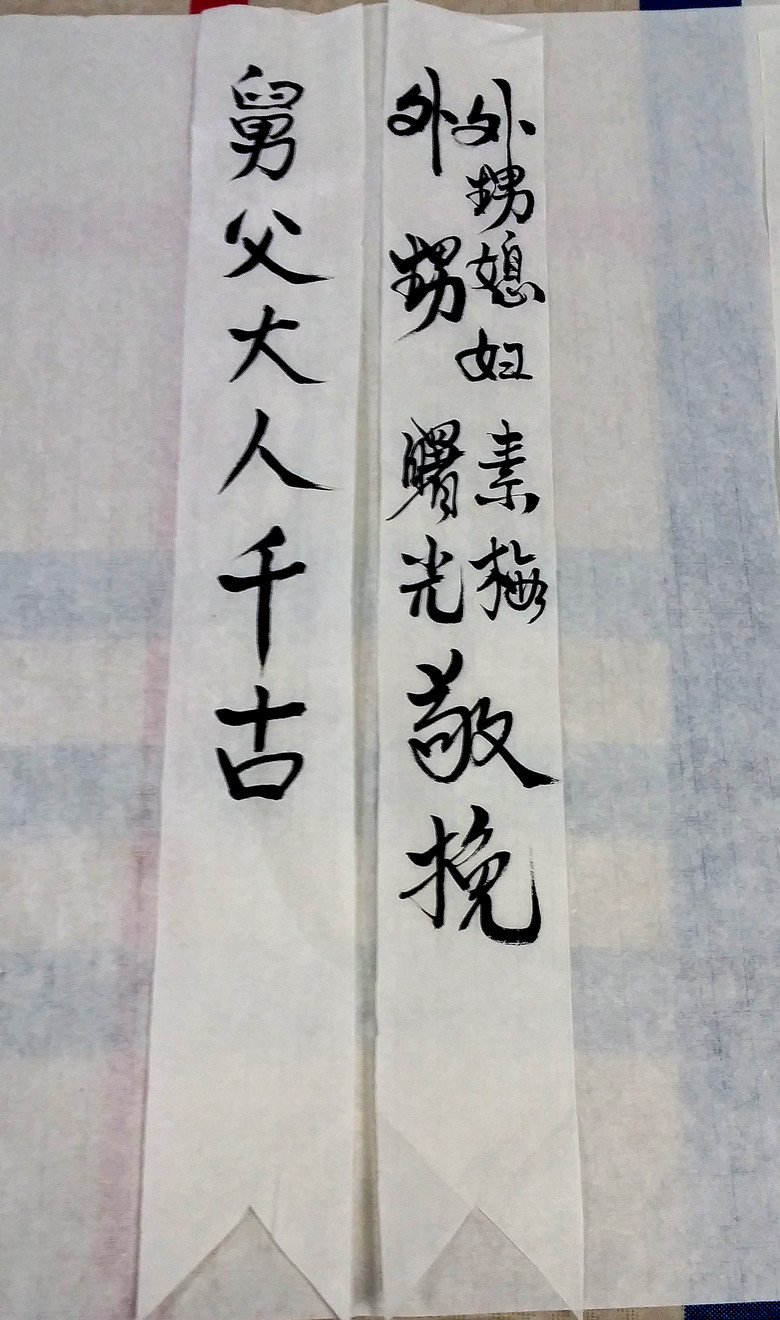 外甥媳妇素梅
外甥曙光
敬挽
舅父大人千古